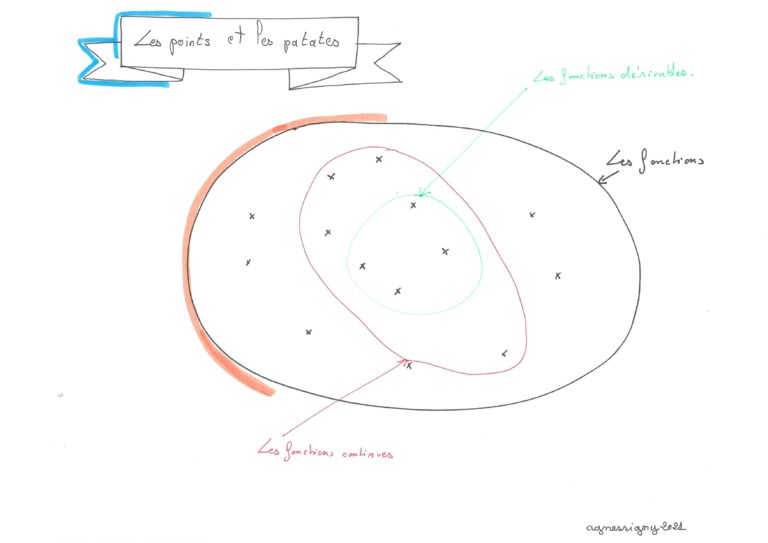 Les points et les patates
Les fonctions dérivables.
Les fonctions
Les fonctions continues
agnesrigny-2021